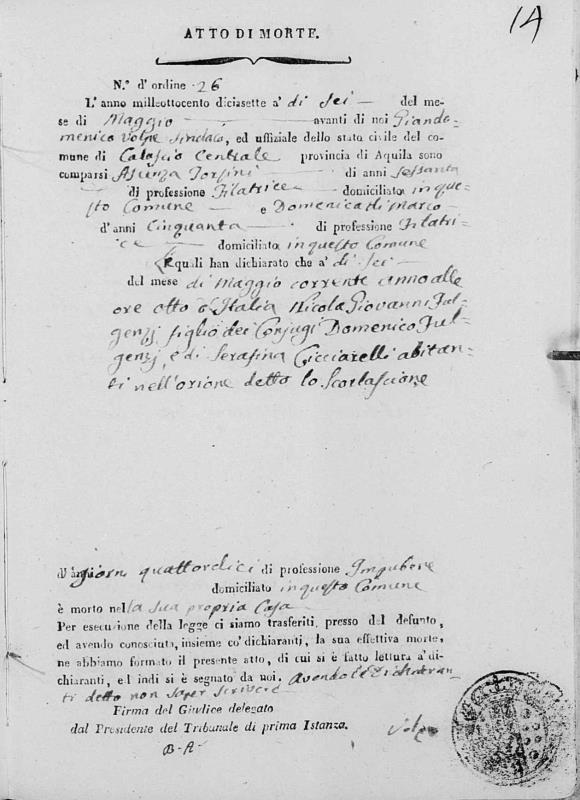 14
ATTO DI MORTE.
N.° d'ordine 26
L'anno milleottocento diciasette a' di Sei del me-
se di Maggio avanti di noi Giando-
menico Volpe Sindaco, ed uffiziale dello stato civile del co-
mune di Calascio Centrale provincia di Aquila sono
comparsi Ascenza Torsini di anni Sessanta
di professione Filatrice domiciliato in que-
sto Comune e Domenica di Marco
d'anni Cinquanta di professione Filatri-
ce domiciliato in questo Comune
I quali han dichiarato che a' di Sei
del mese di Maggio corrente anno alle
ore otto d'Italia Nicola Giovanni Ful-
genzj figlio dei Conjugi Domenico Ful-
genzj, e di Serafina Cicciarelli abitan-
ti nell'orione detto lo Scarlascione
d' giorni quattordici di professione Impubere
domiciliato in questo Comune
è morto nella sua propria Casa
Per esecuzione della legge ci siamo trasferiti presso del defunto,
ed avendo conosciuta, insieme co' dichiaranti, la sua effettiva morte,
ne abbiamo formato il presente atto, di cui si è fatto lettura a' di-
chiaranti, ed indi si è segnato da noi, avendo i Dichiaran-
ti detto non saper scrivere
Firma del Giudice delegato
dal Presidente del Tribunale di prima Istanza. Volpe
B-A-